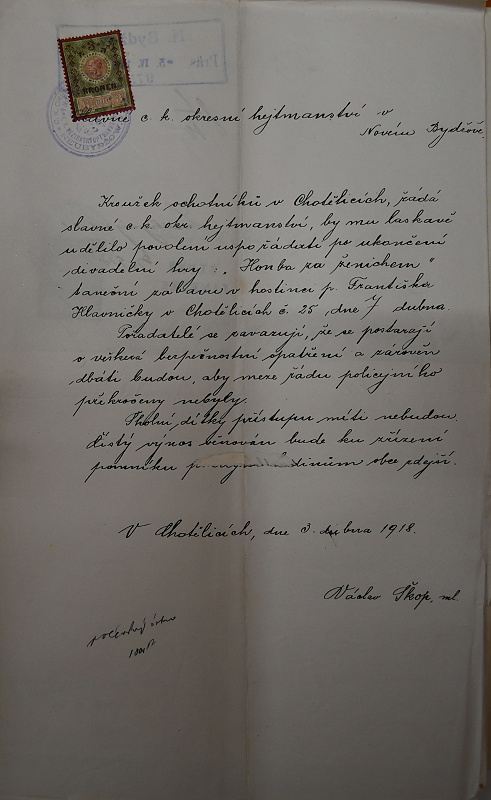 3
KRONEN
c. k. okresní hejtmanství v
Novém Bydžově.
Kroužek ochotníků v Chotělicích, žádá
slavné c. k. okr. hejtmanství, by mu laskavě
udělilo povolení uspořádati po ukončení
divadelní hry: „Honba za ženichem"
taneční zábavu v hostinci p. Františka
Hlavničky v Chotělicích č. 25, dne 7 dubna.
Pořadatelé se zavazují, že se postarají
o veškerá bezpečnostní opatření a zároveň
dbáti budou, aby meze řádu policejního
překročeny nebyly.
Školní dítky přístupu míti nebudou.
Čistý výnos věnován bude ku zřízení
pomníku obce zdejší.
V Chotělicích, dne 3. dubna 1918.
Václav Škop, ml.